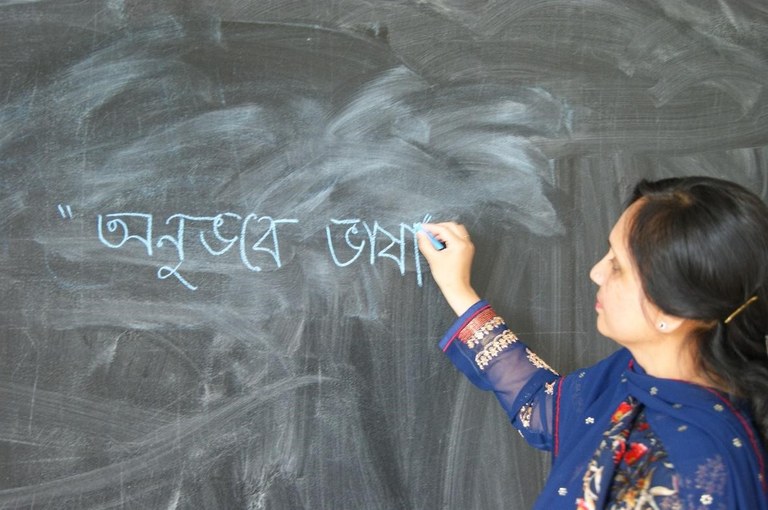 "অনুভবে ভাষা"